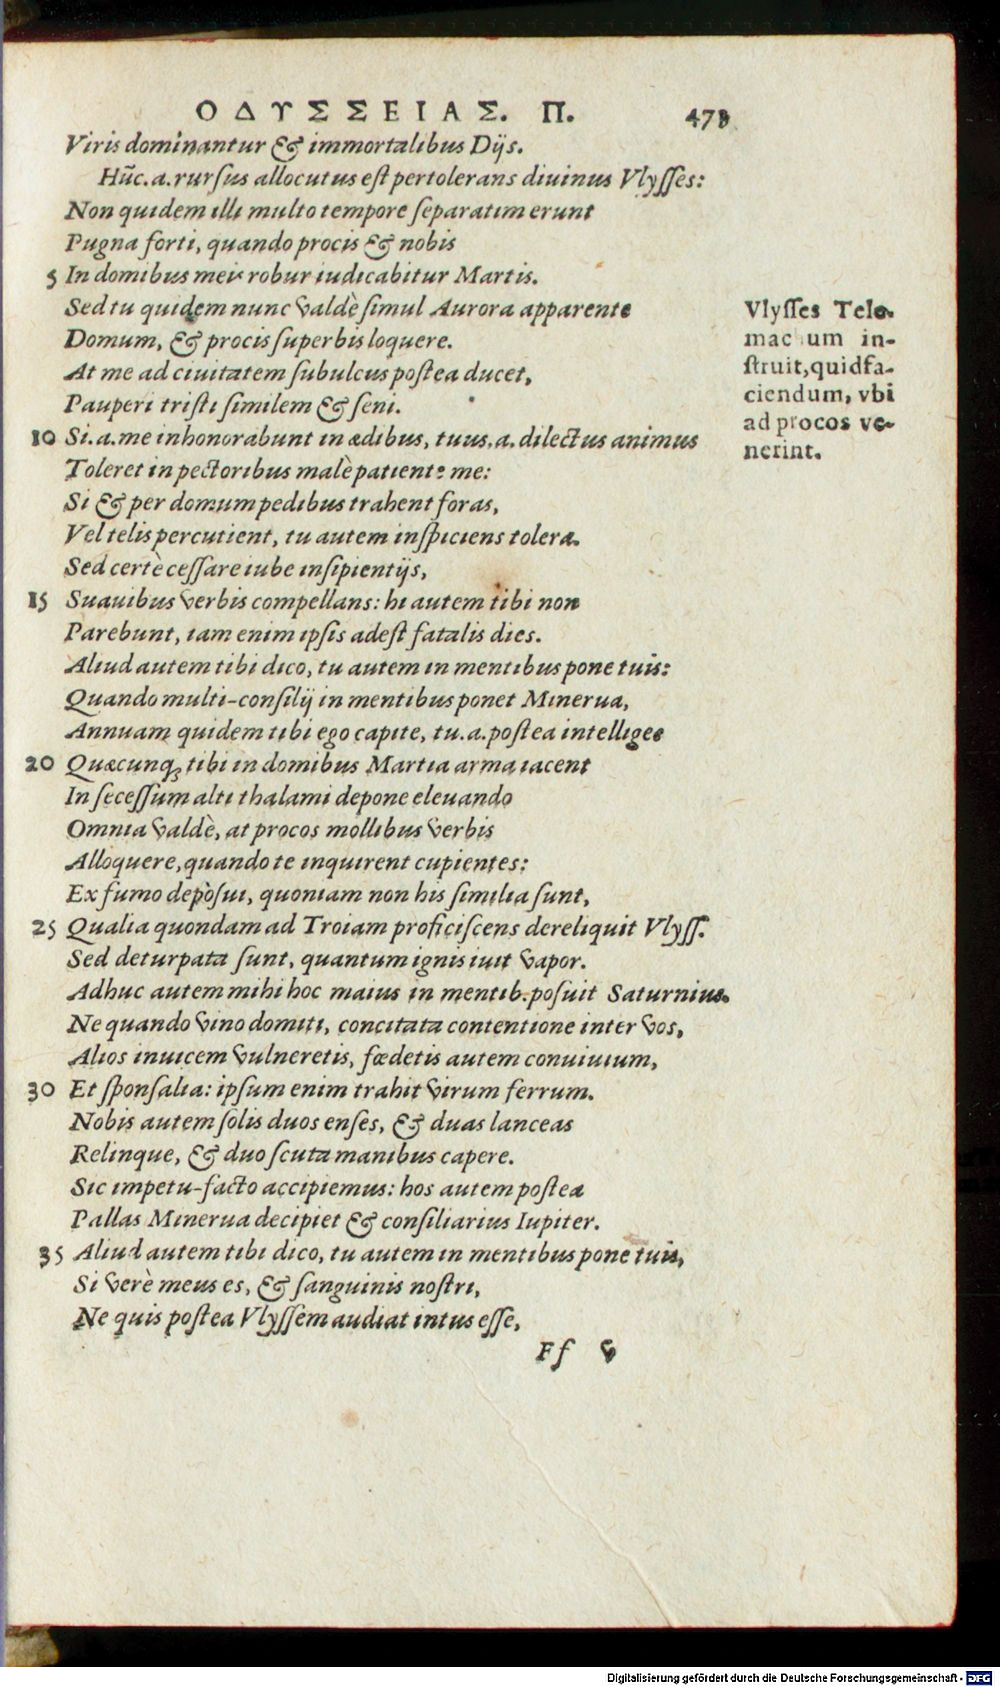 ΟΔΥΣΣΕΙΑΣ. Π. 473
Viris dominantur & immortalibus Dijs.
Hūc. a. rursus allocutus est pertolerans diuinus Vlysses:
Non quidem illi multo tempore separatim erunt
Pugna forti, quando procis & nobis
5 In domibus meis robur iudicabitur Martis.
Sed tu quidem nunc valdè simul Aurora apparente
Domum, & procis superbis loquere.
At me ad ciuitatem subulcus postea ducet,
Pauperi tristi similem & seni.
10 Si. a. me inhonorabunt in ædibus, tuus. a. dilectus animus
Toleret in pectoribus malè patiente me:
Si & per domum pedibus trahent foras,
Vel telis percutient, tu autem inspiciens tolera.
Sed certè cessare iube insipientijs,
15 Suauibus verbis compellans: hi autem tibi non
Parebunt, iam enim ipsis adest fatalis dies.
Aliud autem tibi dico, tu autem in mentibus pone tuis:
Quando multi-consilij in mentibus ponet Minerua,
Annuam quidem tibi ego capite, tu. a. postea intelliges
20 Quæcunq; tibi in domibus Martia arma iacent
In secessum alti thalami depone eleuando
Omnia valdè, at procos mollibus verbis
Alloquere, quando te inquirent cupientes:
Ex fumo deposui, quoniam non his similia sunt,
25 Qualia quondam ad Troiam proficiscens dereliquit Vlyss.
Sed deturpata sunt, quantum ignis iuit vapor.
Adhuc autem mihi hoc maius in mentib. posuit Saturnius.
Ne quando vino domiti, concitata contentione inter vos,
Alios inuicem vulneretis, fœdetis autem conuiuium,
30 Et sponsalia: ipsum enim trahit virum ferrum.
Nobis autem solis duos enses, & duas lanceas
Relinque, & duo scuta manibus capere.
Sic impetu-facto accipiemus: hos autem postea
Pallas Minerua decipiet & consiliarius Iupiter.
35 Aliud autem tibi dico, tu autem in mentibus pone tuis,
Si verè meus es, & sanguinis nostri,
Ne quis postea Vlyssem audiat intus esse,
Ff v
Vlysses Tele-
machum in-
struit, quid fa-
ciendum, vbi
ad procos ve-
nerint.
Digitalisierung gefördert durch die Deutsche Forschungsgemeinschaft - DFG